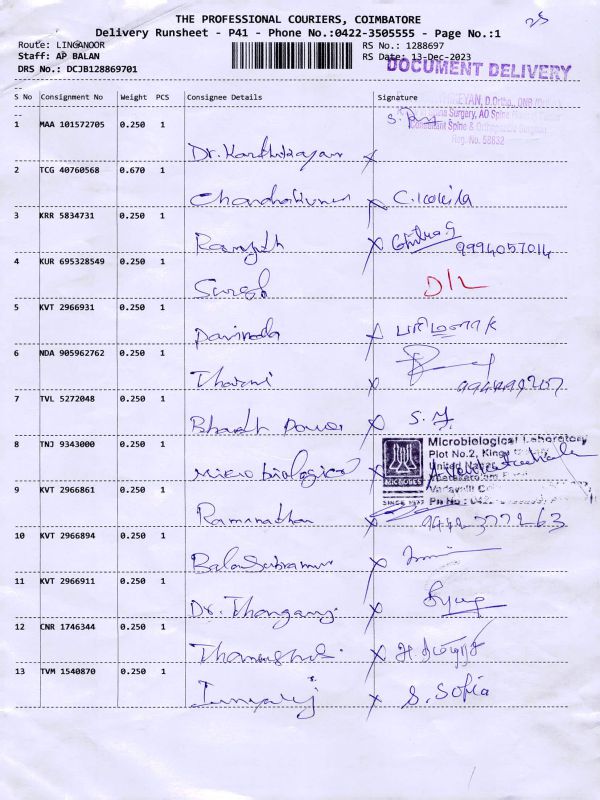 THE PROFESSIONAL COURIERS, COIMBATORE
25
Delivery Runsheet - P41 - Phone No.:0422-3505555 - Page No.:1
Route: LINGANOOR
RS No.: 1288697
Staff: AP BALAN
RS Date: 13-Dec-2023
DRS No.: DCJB128869701
DOCUMENT DELIVERY
S No Consignment No Weight PCS Consignee Details Signature
D.Ortho., DNB
Surgery, AO Spine
Consultant Spine & Orthopaedic Surgeon
Reg. No. 58832
1 MAA 101572705 0.250 1
Dr. Karthikeyan x
2 TCG 40760568 0.670 1
Chandrakumar x C. Kokila
3 KRR 5834731 0.250 1
Ranjith x Chitra G 9994057014
4 KUR 695328549 0.250 1
Suresh D/L
5 KVT 2966931 0.250 1
x
6 NDA 905962762 0.250 1
Tharni x
7 TVL 5272048 0.250 1
Bharth Power x S.
8 TNJ 9343000 0.250 1
Micro biological x
Microbiological Laboratory
Plot No.2, Kings
United Nagar
MICROBES
SINCE
9 KVT 2966861 0.250 1
Ramanathan x 9442377263
10 KVT 2966894 0.250 1
Balasubramani x
11 KVT 2966911 0.250 1
Dr. Thangaraj x
12 CNR 1746344 0.250 1
x
13 TVM 1540870 0.250 1
x S. Sofia